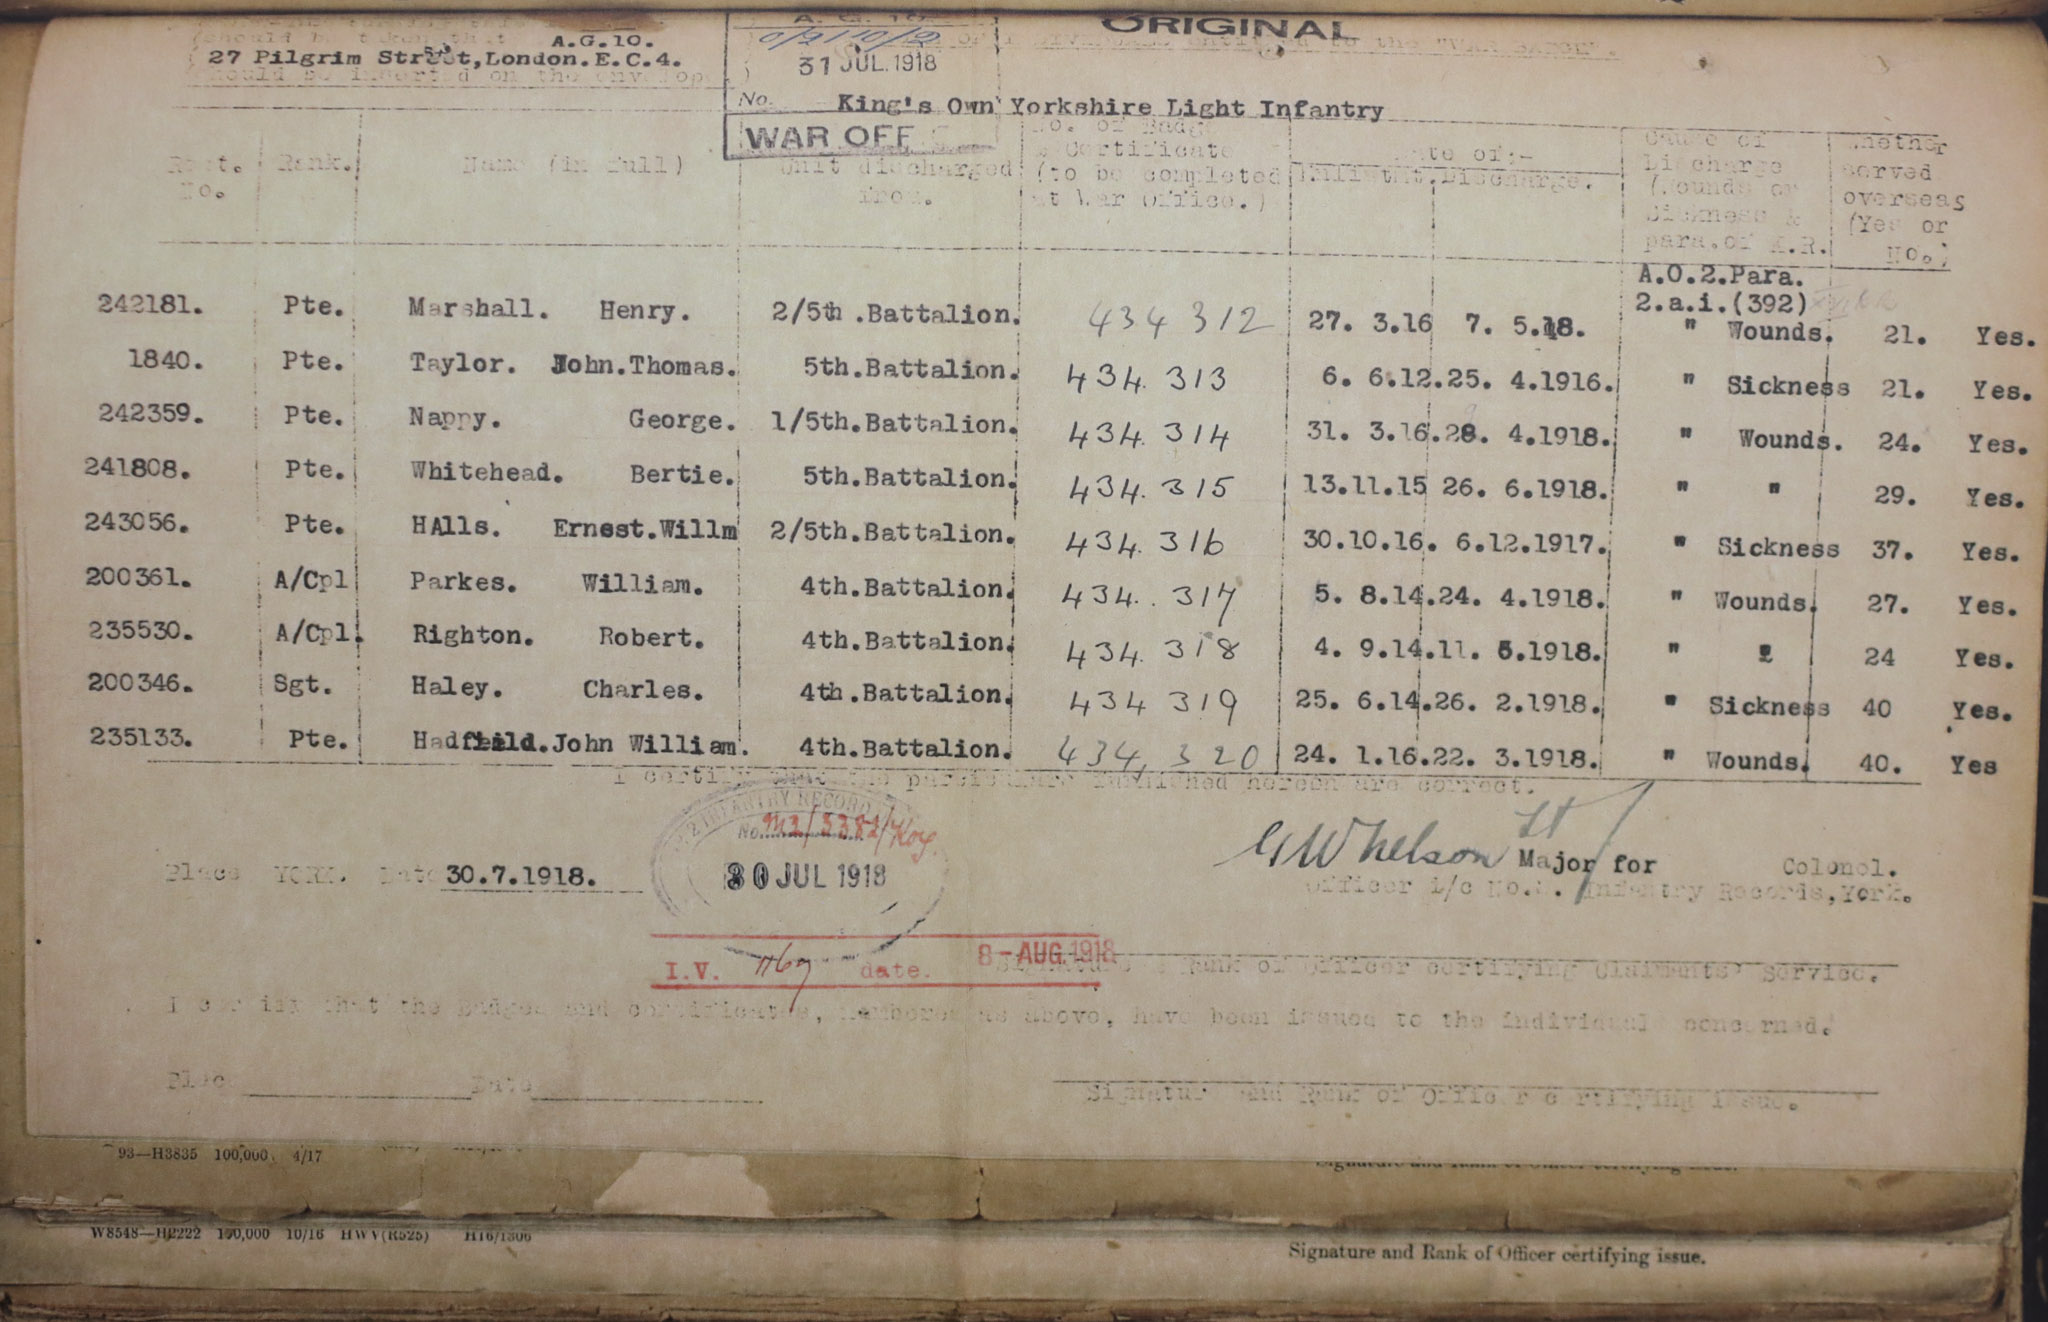 ORIGINAL
A.G.10.
27 Pilgrim Street, London. E.C.4.
31 JUL. 1918
No.
King's Own Yorkshire Light Infantry
WAR OFF
Regt. No. Rank. Name (in full) Unit discharged from. No. of Badge & Certificate (to be completed at War Office.) Date of:- Enlistmt. Discharge. Cause of Discharge (Wounds or Sickness & para. of K.R. Whether served overseas (Yes or No.)
A.O.2.Para.
2.a.i.(392)
242181. Pte. Marshall. Henry. 2/5th.Battalion. 434 312 27. 3.16 7. 5.18. " Wounds. 21. Yes.
1840. Pte. Taylor. John.Thomas. 5th.Battalion. 434. 313 6. 6.12.25. 4.1916. " Sickness 21. Yes.
242359. Pte. Nappy. George. 1/5th.Battalion. 434. 314 31. 3.16.28. 4.1918. " Wounds. 24. Yes.
241808. Pte. Whitehead. Bertie. 5th.Battalion. 434. 315 13.11.15 26. 6.1918. " " 29. Yes.
243056. Pte. HAlls. Ernest.Willm 2/5th.Battalion. 434. 316 30.10.16. 6.12.1917. " Sickness 37. Yes.
200361. A/Cpl Parkes. William. 4th.Battalion. 434. 317 5. 8.14.24. 4.1918. " Wounds. 27. Yes.
235530. A/Cpl. Righton. Robert. 4th.Battalion. 434. 318 4. 9.14.11. 5.1918. " " 24 Yes.
200346. Sgt. Haley. Charles. 4th.Battalion. 434 319 25. 6.14.26. 2.1918. " Sickness 40 Yes.
235133. Pte. Hadfield.John William. 4th.Battalion. 434, 320 24. 1.16.22. 3.1918. " Wounds. 40. Yes
I certify that the particulars furnished hereon are correct.
INFANTRY RECORD
No.
30 JUL 1918
Place YORK. Date 30.7.1918.
Lt Major for Colonel.
Officer i/c No.2. Infantry Records, York.
I.V. date. 8-AUG.1918
Signature & Rank of Officer certifying Claimants' Service.
I certify that the Badges and certificates, numbered as above, have been issued to the individuals concerned.
Place Date
Signature and Rank of Officer certifying issue.
93—H3835 100,000 4/17
Signature and Rank of Officer certifying issue.
W8548—H2222 100,000 10/16 HWV(R525) H16/1306
Signature and Rank of Officer certifying issue.